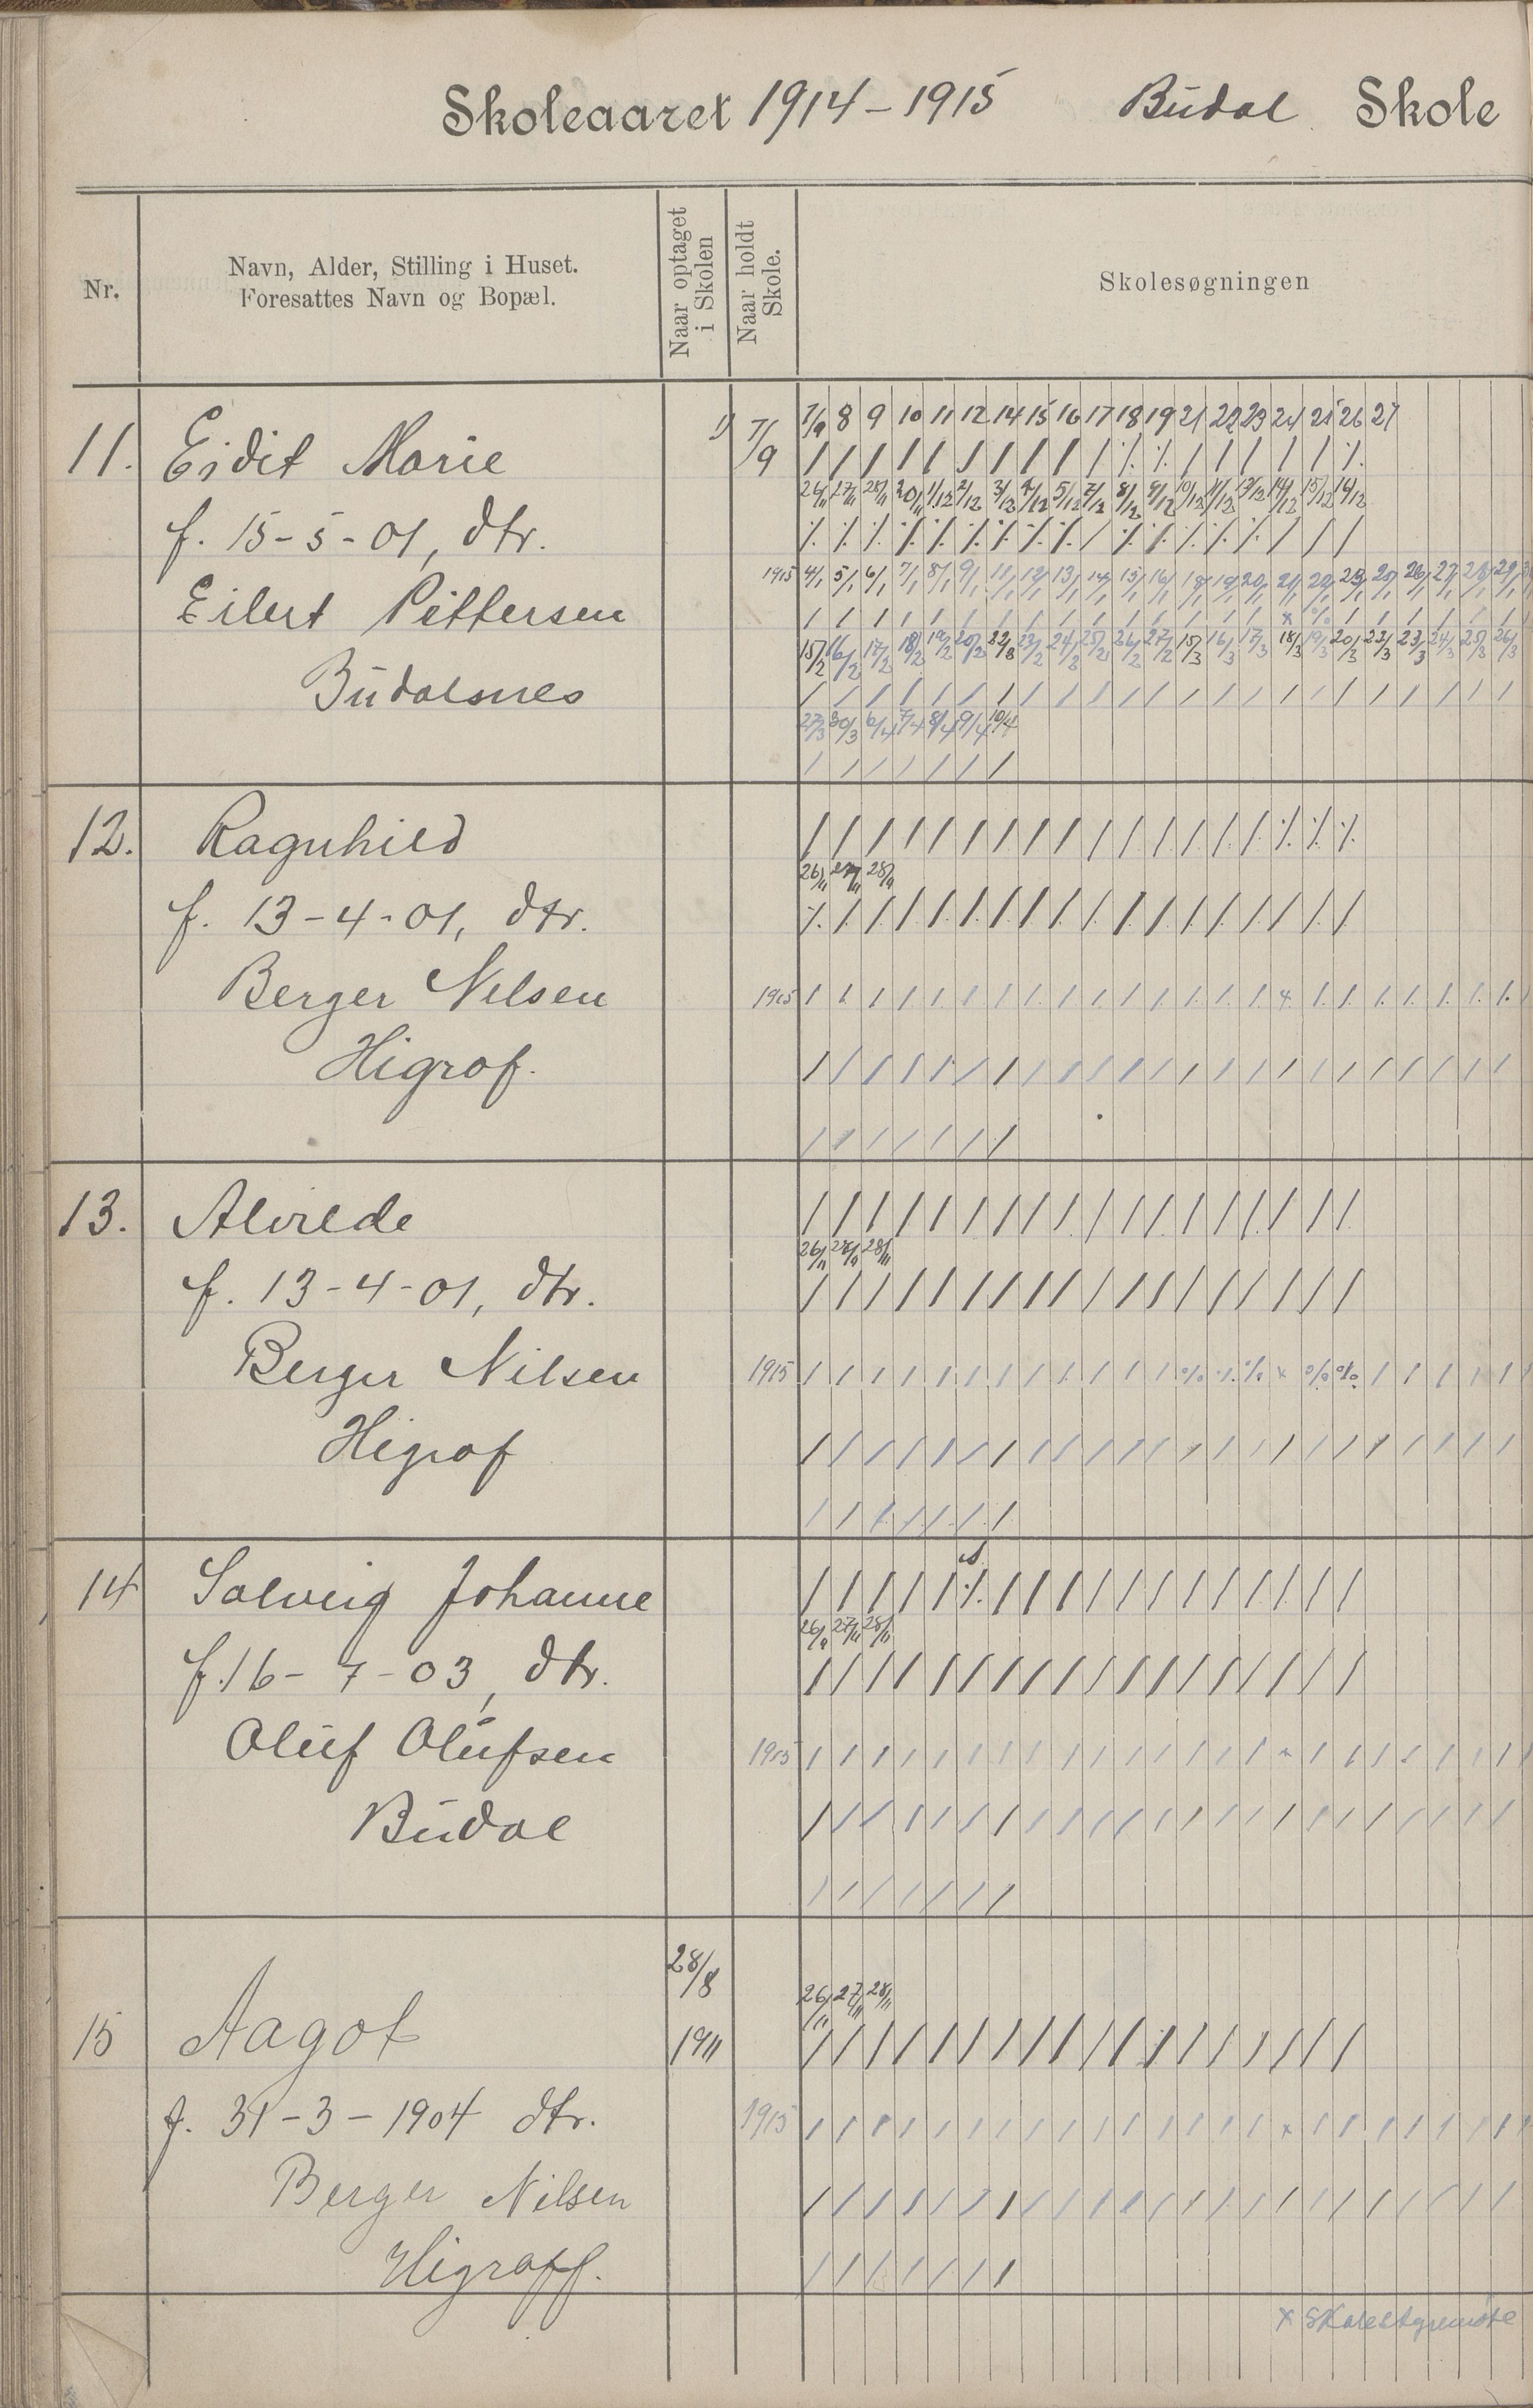 Skoleaaret 1914-1915 Budal Skole
Nr.
Navn, Alder, Stilling i Huset.
Foresattes Navn og Bopæl.
Naar optaget
i Skolen
Naar holdt
Skole.
Skolesøgningen
7/9 8 9 10 11 12 14 15 16 17 18 19 21 22 23 24 25 26 27
11. Eidit Marie 7/9
26/11 27/11 28/11 30/11 1/12 2/12 3/12 4/12 5/12 7/12 8/12 9/12 10/12 11/12 12/12 14/12 15/12 16/12
f. 15-5-01, dtr.
1915 4/1 5/1 6/1 7/1 8/1 9/1 11/1 12/1 13/1 14/1 15/1 16/1 18/1 19/1 20/1 21/1 22/1 23/1 25/1 26/1 27/1 28/1 29/1
Eilert Pittersen
15/2 16/2 17/2 18/2 19/2 20/2 22/2 23/2 24/2 25/2 26/2 27/2 15/3 16/3 17/3 18/3 19/3 20/3 22/3 23/3 24/3 25/3 26/3
Budalsnes
27/3 30/3 6/4 7/4 8/4 9/4 10/4
12. Ragnhild
26/11 27/11 28/11
f. 13-4-01, dtr.
Berger Nilsen 1915
Higrof.
13. Alvilde
26/11 27/11 28/11
f. 13-4-01, dtr.
Berger Nilsen 1915
Higrof
14 Solveig Johanne
26/11 27/11 28/11
f. 16-7-03, dtr.
Oluf Olufsen 1915
Budal
28/8
26/11 27/11 28/11
15 Aagot 1911
f. 31-3-1904 dtr. 1915
Berger Nilsen
Higraff.
x Skolestyremøte